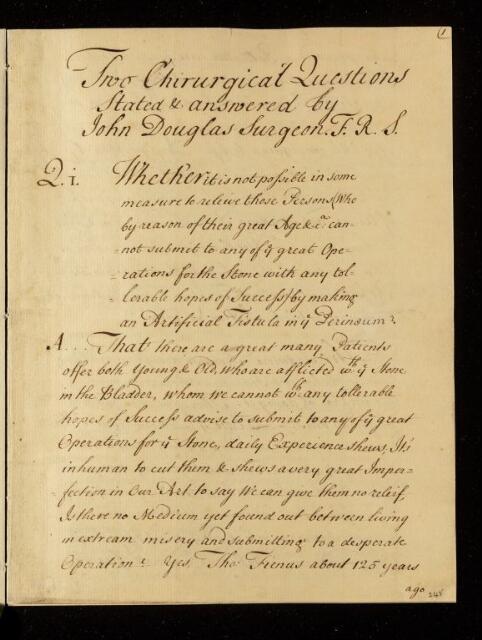 1
Two Chirurgical Questions
Stated & answered by
John Douglas Surgeon. F. R. S.
Q. 1. Whether it is not possible in some
measure to relieve those Persons (Who
by reason of their great Age &ca. can-
-not submit to any of ye great Ope-
-rations for the Stone with any tol-
-lerable hopes of Success) by making
an Artificial Fistula in ye Perinæum?
A... That there are a great many Patients
offer both Young & Old, who are afflicted wth. ye Stone
in the Bladder, whom we cannot wth. any tollerable
hopes of Success advise to submit to any of ye great
Operations for ye Stone, daily Experience shews, It's
inhuman to cut them & shews a very great Imper-
-fection in Our Art to say We can give them no releif,
Is there no Medium yet found out between living
in extream misery and submitting to a desperate
Operation? Yes. Tho. Fienus about 125 years
ago